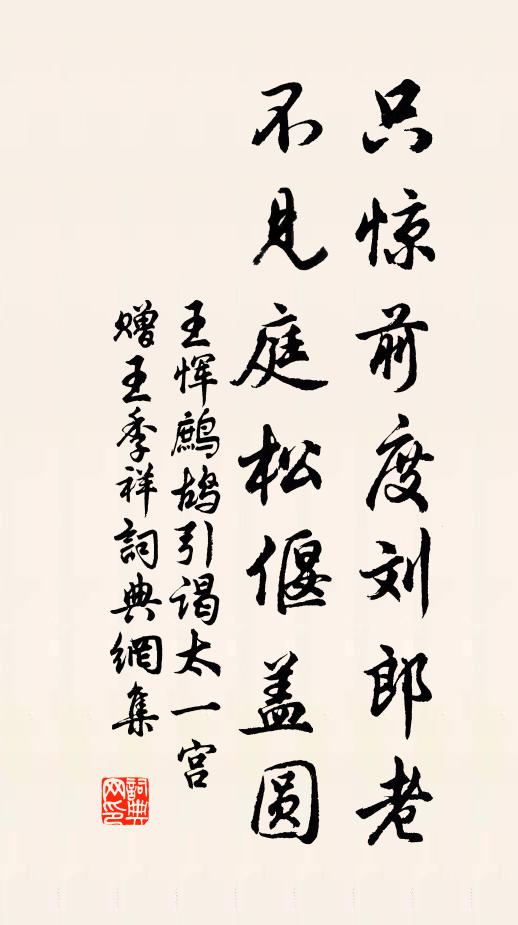 只惊前度刘郎老
不见庭松偃盖圆
王恽鹧鸪引谒太一宫
赠王季祥詞典網集
詞典網印